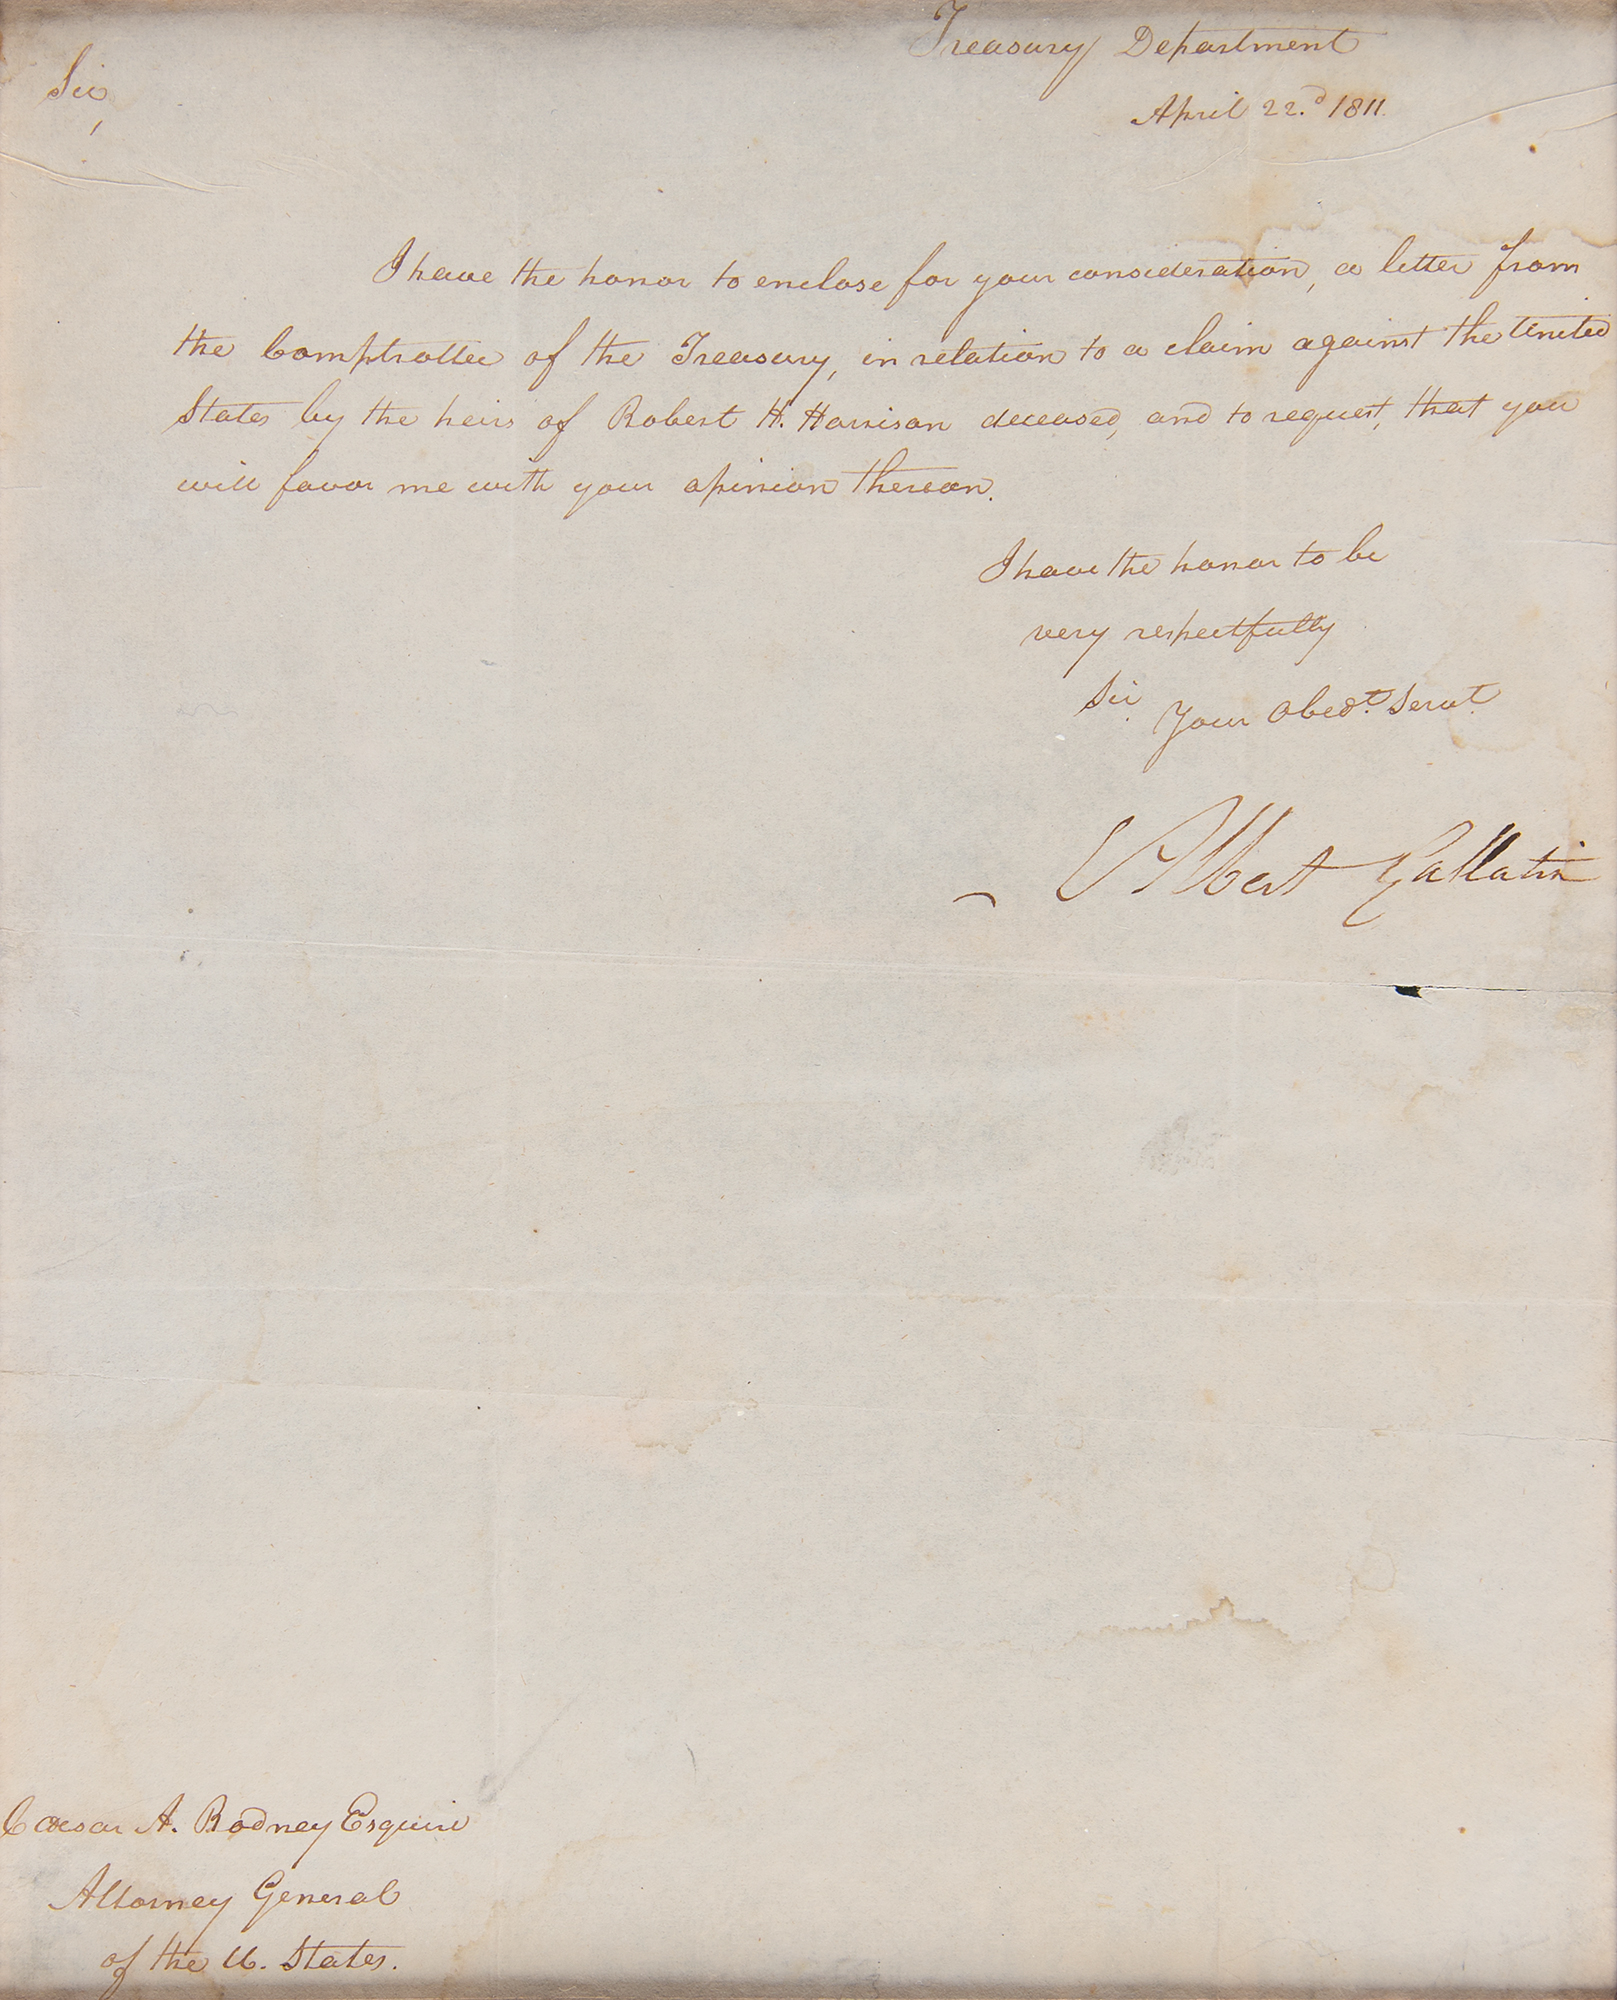 Treasury Department
April 22.d 1811.
Sir,
I have the honor to enclose for your consideration, a letter from
the Comptroller of the Treasury, in relation to a claim against the United
States by the heirs of Robert H. Harrison deceased, and to request, that you
will favor me with your opinion thereon.
I have the honor to be
very respectfully
Sir.
Your Obedt. Servt.
Albert Gallatin
Caesar A. Rodney Esquire
Attorney General
of the U. States.